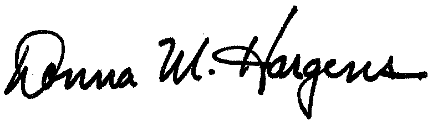 Donna M. Hargens